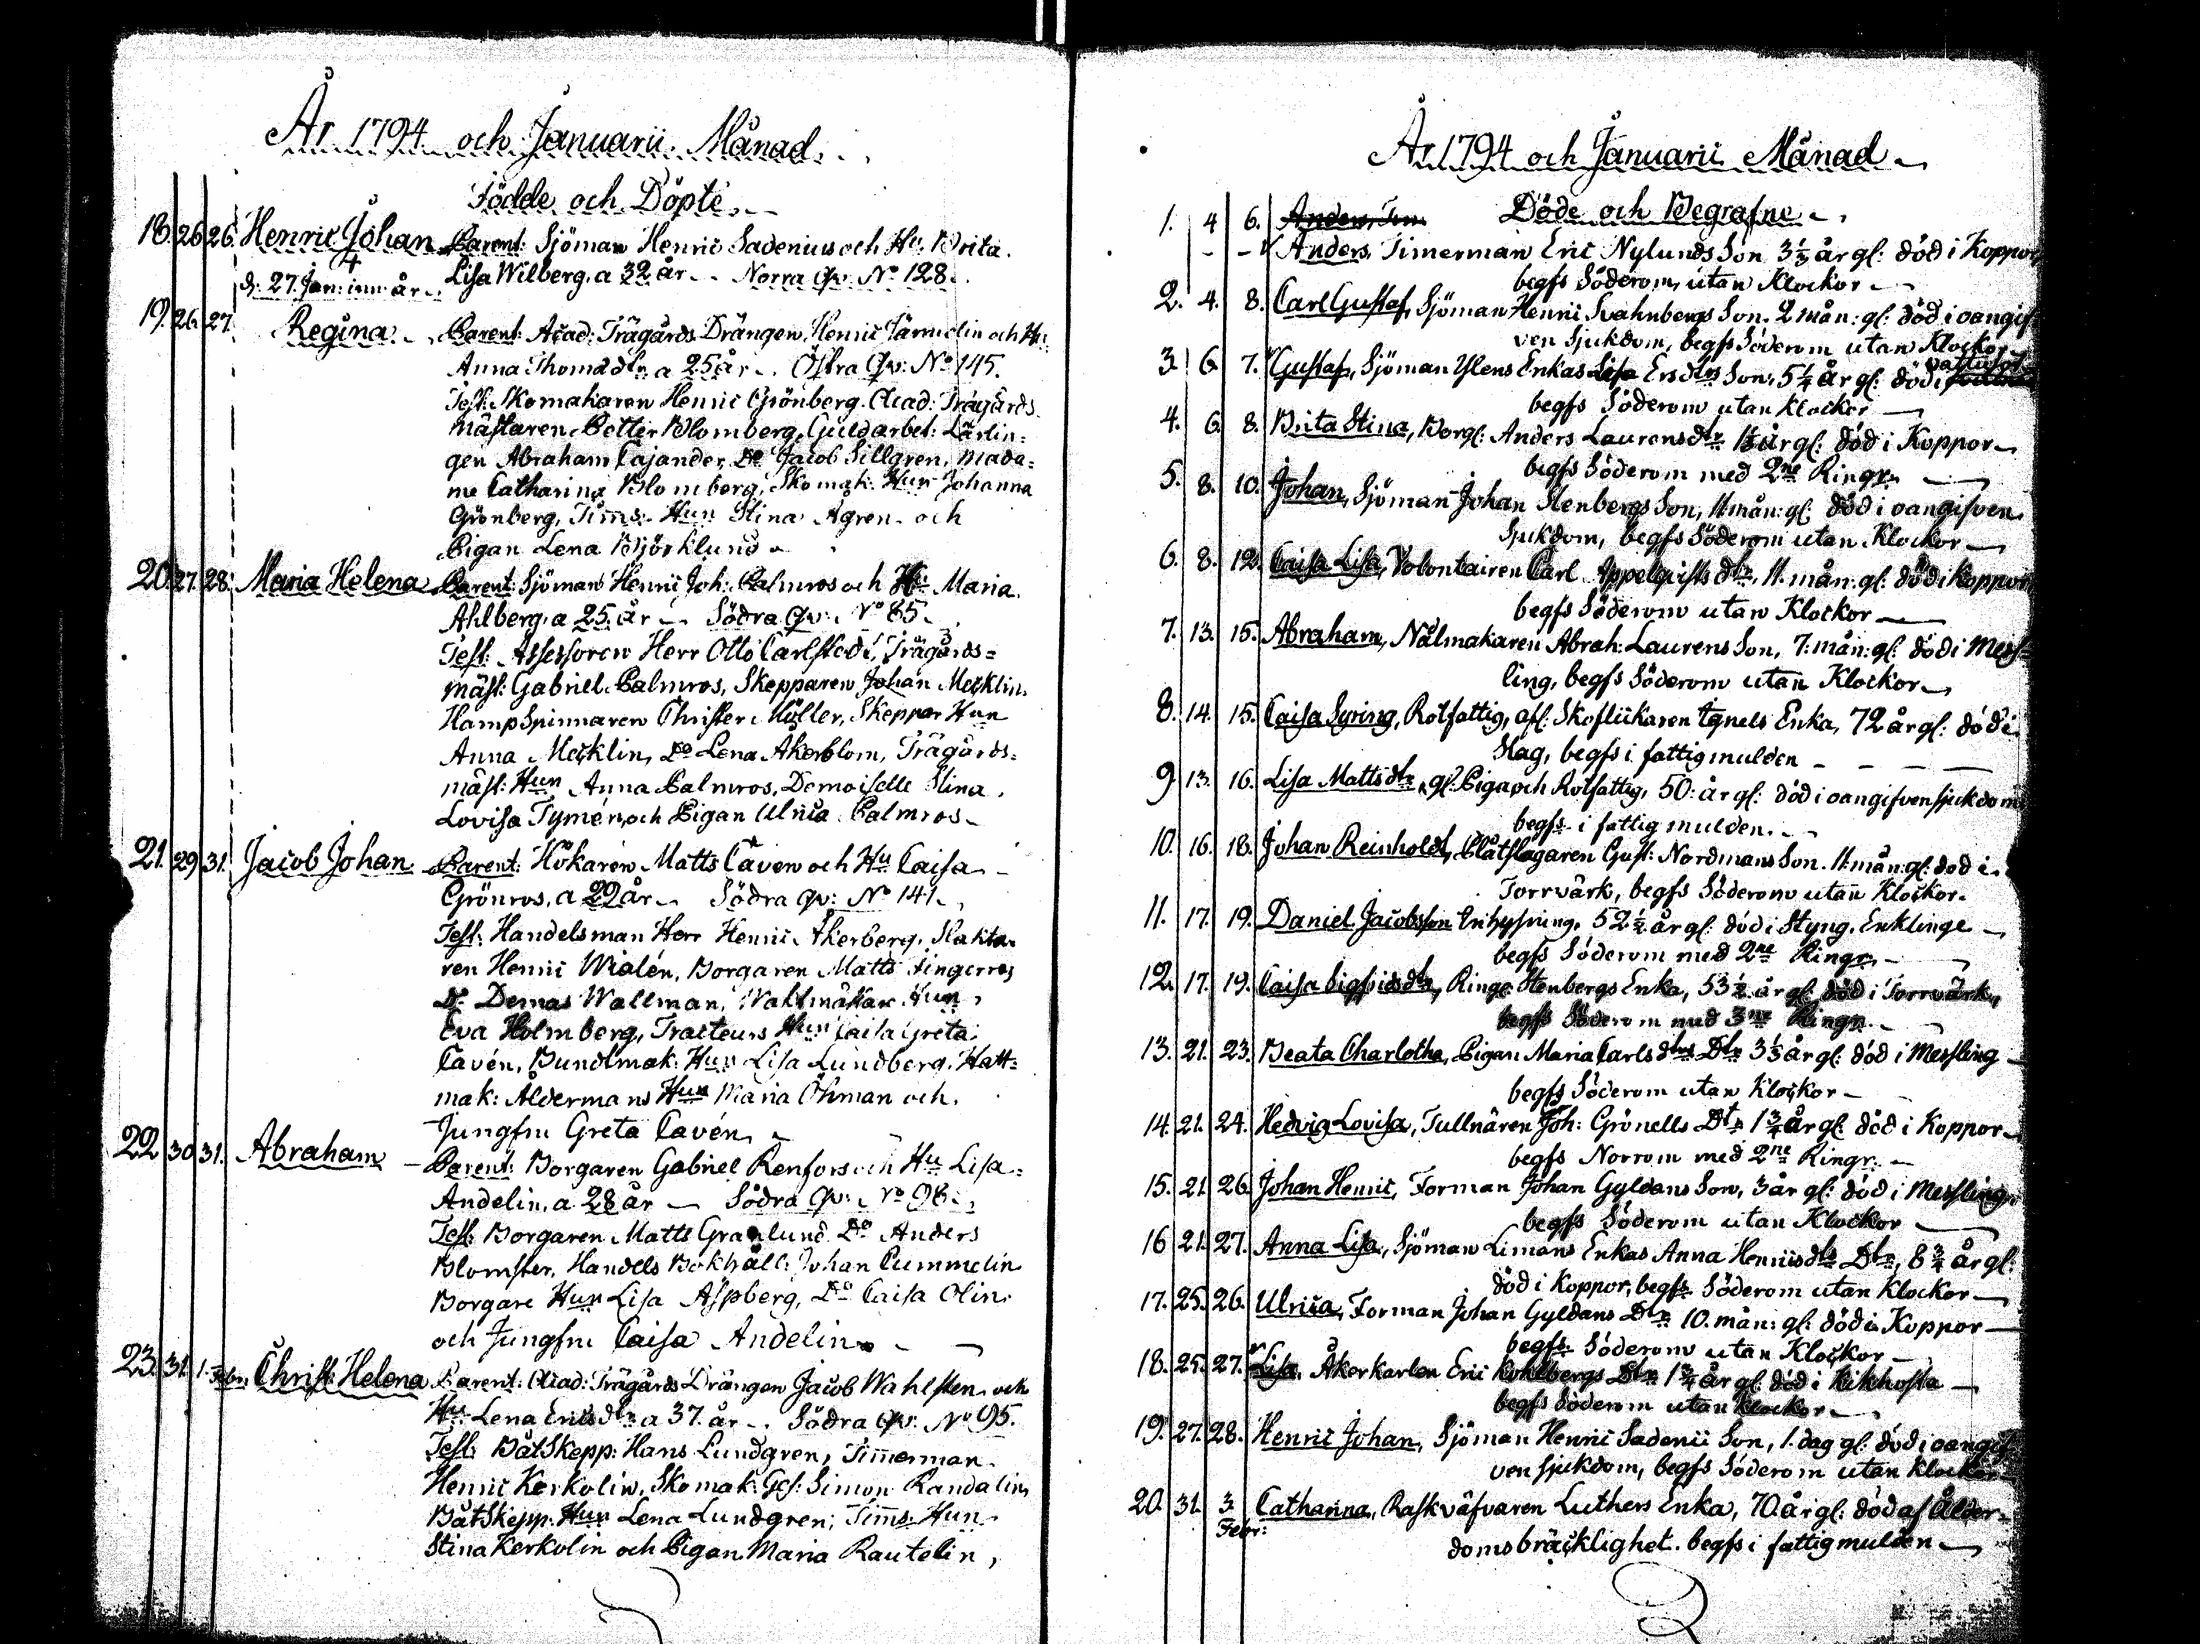 År 1794 och Januarii Månad.
Födde och Döpte.
18. 26 26. Henric Johan Parent: Sjöman Henric Sadenius och Hu. Brita
d. 27. Jan: inn: år. Lisa Wilberg, a 32 år. Norra Qv: No 128.
19. 26. 27. Regina. Parent: Acad: Trägårds Drängen Henric Järnelin och Hu:
Anna Thomædtr a 25 år. Östra Qv: No 145.
Test: Skomakaren Henric Grönberg. Acad: Trägårds
mästaren Petter Blomberg, Guldarbet: Lärlin=
gen Abraham Cajander, Do Jacob Sillgren, Mada=
me Catharina Blomberg, Skomak: Hun Johanna
Grönberg, Tims: Hun Stina Ågren och
Pigan Lena Björklund
20. 27. 28. Maria Helena Parent: Sjöman Henric Joh: Palmros och Hu Maria
Ahlberg, a 25. år Södra Qv: No 85.
Test: Assessoren Herr Otto Carlstedt, Trägårds=
mäst: Gabriel Palmros, Skepparen Johan Mecklin,
HampSpinnaren Christer Möller, Skeppar Hun
Anna Mecklin, Do Lena Åkerblom, Trägårds=
mäst: Hun Anna Palmros, Demoiselle Stina
Lovisa Tymén, och Pigan Ulrica Palmros
21. 29 31. Jacob Johan. Parent: Hökaren Matts Caven och Hu Caisa
Grönros, a 22 år. Södra Qv: No 141.
Test: Handelsman Herr Henric Åkerberg, Slakta=
ren Henric Wialén, Borgaren Matts Fingerroos
Do Demas Wallman, Waktmäkar Hun
Eva Holmberg, Tracteurs Hun Caisa Greta
Cavén, Bundtmak: Hun Lisa Lundberg, Hatt=
mak: Åldermans Hun Maria Öhman och
Jungfru Greta Cavén
22 30 31. Abraham Parent: Borgaren Gabriel Renfors och Hu Lisa
Andelin, a 28 år Södra Qv: No 98.
Test: Borgaren Matts Granlund Do Anders
Blomster, Handels Bokhåll: Johan Pummelin
Borgare Hun Lisa Aspberg, Do Caisa Olin
och Jungfru Caisa Andelin
23. 31. 1. Febr: Christ: Helena Parent: Acad: Trägårds Drängen Jacob Wahlsten och
Hu Lena Ericsdtr a 37. år Södra Qv: No 95.
Test: BåtSkepp: Hans Lundgren, Timmerman
Henric Kerkolin, Skomak: Ges: Simon Randalin,
BåtSkepp: Hun Lena Lundgren; Timms: Hun
Stina Kerkolin och Pigan Maria Rautelin,
År 1794 och Januarii Månad
1. 4 6. Döde och Begrafne
Anders, Timerman Eric Nylunds Son 3 1/2 år gl: död i Koppor,
begfs Söderom, utan Klockor
2. 4. 8. Carl Gustaf, Sjöman Henric Svahnbergs Son, 2 mån: gl: död i oangif=
ven Sjukdom, begfs Söderom utan Klockor
3. 6 7. Gustaf, Sjöman Ylens Enkas Lisa Ersdtrs Son, 5 1/4 år gl: död i
begfs Söderom utan Klockor
4. 6 8. Brita Stina, Borg: Anders Laurens dtr 1 1/2 år gl: död i Koppor
begfs Söderom med 2ne Ringr
5. 8. 10. Johan, Sjöman Johan Stenbergs Son, 11 mån: gl: död i oangifven
Sjukdom, begfs Söderom utan Klockor
6. 8. 12. Caisa Lisa, Volontairen Carl Appelqvists dtr, 11. mån: gl: död i Koppor
begfs Söderom utan Klockor
7. 13. 15. Abraham, Nålmakaren Abrah: Laurens Son, 7. mån: gl: död i Mess=
ling, begfs Söderom utan Klockor
8. 14. 15. Caisa Syring, Rotfattig, afl: Skoflickaren Ignels Enka, 72 år gl: död i
Slag, begfs i fattigmulden
9 13. 16. Lisa Mattsdtr, gl: Piga och Rotfattig, 50: år gl: död i oangifven sjukdom
begfs i fattigmulden.
10. 16. 18. Johan Reinholdt, Plåtslagaren Gust: Nordmans Son. 11. mån: gl: död i
Torrvärk, begfs Söderom utan Klockor.
11. 17. 19. Daniel Jacobsson Inhysning, 52 1/2 år gl: död i Styng. Enklinge
begfs Söderom med 2ne Ringr
12. 17. 19. Caisa Sigfridsdtr, Ringe Stenbergs Enka, 53 1/2 år gl: död i Torrvärk,
begfs Söderom med 3ne Ringr.
13. 21. 23. Beata Charlotha, Pigan Maria Carlsdtrs Dtr 3 1/3 år gl: död i Messling
begfs Söderom utan Klockor
14. 21. 24. Hedvig Lovisa, Tullnären Joh: Grönells Dtr 1 3/4 år gl: död i Koppor
begfs Norrom med 2ne Ringr.
15. 21 26. Johan Henric, Forman Johan Gyldans Son, 3 år gl: död i Messling
begfs Söderom utan Klockor
16 21 27. Anna Lisa, Sjöman Limans Enkas Anna Henricsdtrs Dtr, 8 3/4 år gl:
död i Koppor, begfs Söderom utan Klockor
17. 25. 26. Ulrica, Forman Johan Gyldans Dtr 10. mån: gl: död i Koppor
begfs Söderom utan Klockor
18. 25. 27. Lisa, Åkerkarlen Eric Kohlbergs Dtr 1 3/4 år gl: död i Kikhosta
begfs Söderom utan Klockor
19. 27. 28. Henric Johan, Sjöman Henric Sadenii Son, 1. dag gl: död i oangif
ven sjukdom, begfs Söderom utan Klockor
20. 31. 3. Febr: Catharina, Raskväfvaren Luthers Enka, 70. år gl: död af Ålder=
domsbräcklighet. begfs i fattigmulden